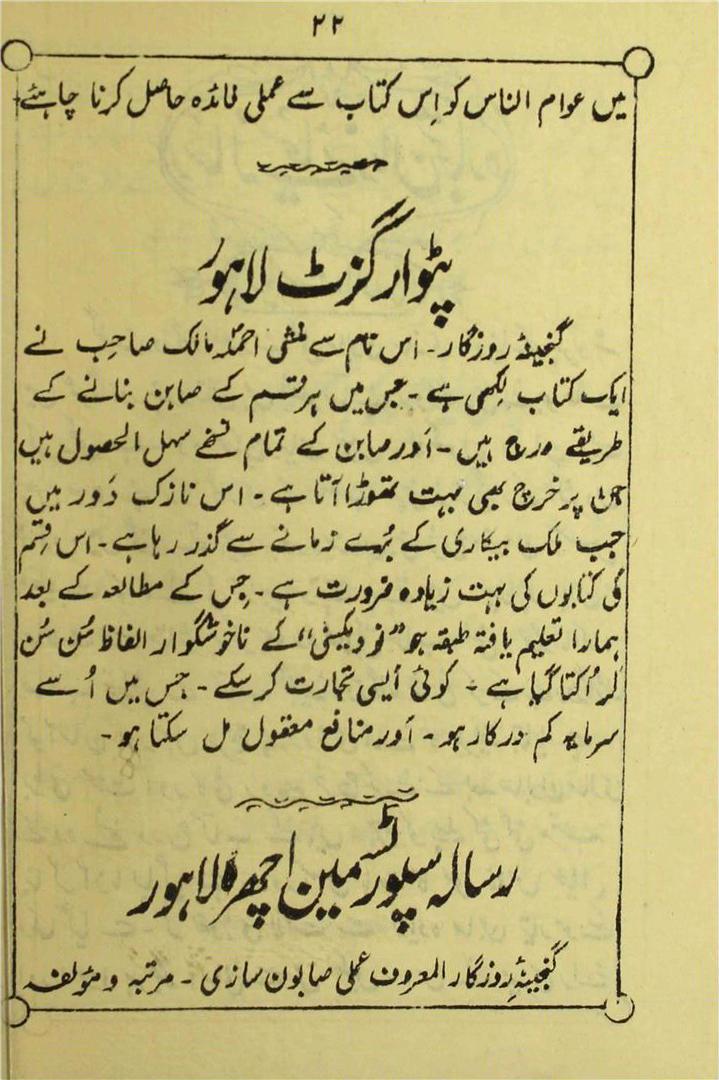 ۲۲
میں عوام الناس کو اِس کتاب سے عملی فائدہ حاصل کرنا چاہئے۔
پٹوار گزٹ لاہور
گنجینۂ روزگار۔ اس نام سے منشی احمد مالک صاحب نے
ایک کتاب لکھی ہے۔ جس میں ہر قسم کے صابن بنانے کے
طریقے درج ہیں۔ اَور صابن کے تمام نسخے سہل الحصول ہیں
جن پر خرچ بھی بہت تھوڑا آتا ہے۔ اس نازک دَور میں
جب ملک بیکاری کے بُرے زمانے سے گذر رہا ہے۔ اس قِسم
کی کتابوں کی بہت زیادہ ضرورت ہے۔ جِس کے مطالعہ کے بعد
ہمارا تعلیم یافتہ طبقہ جو "نو ویکینسی" کے ناخوشگوار الفاظ سُن سُن
کر اُکتا گیا ہے۔ کوئی اَیسی تجارت کر سکے۔ جس میں اُسے
سرمایہ کم درکار ہو۔ اَور منافع معقول مل سکتا ہو۔
رسالہ سپورٹسمین اچھرہ لاہور
گنجینۂِ روزگار المعروف عملی صابون سازی۔ مرتبہ و مئولفہ